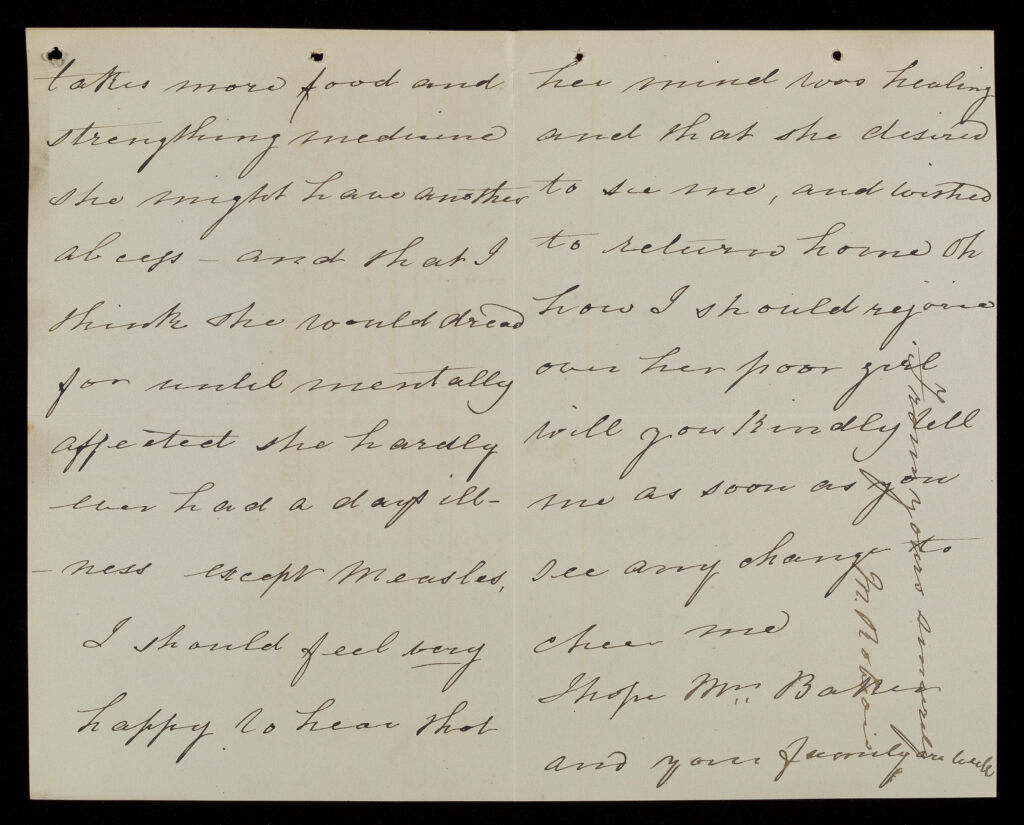 takes more food and
strengthing medicine
she might have another
abcess - and that I
think she would dread
for until mentally
affected she hardly
ever had a days ill-
- ness except Measles,
I should feel very
happy to hear that
her mind was healing
and that she desired
to see me, and wished
to return home Oh
how I should rejoice
over her poor girl,
will you Kindly tell
me as soon as you
see any change to
cheer me
I hope Mrs Baker
and your family are well
from yours sincerely
M.